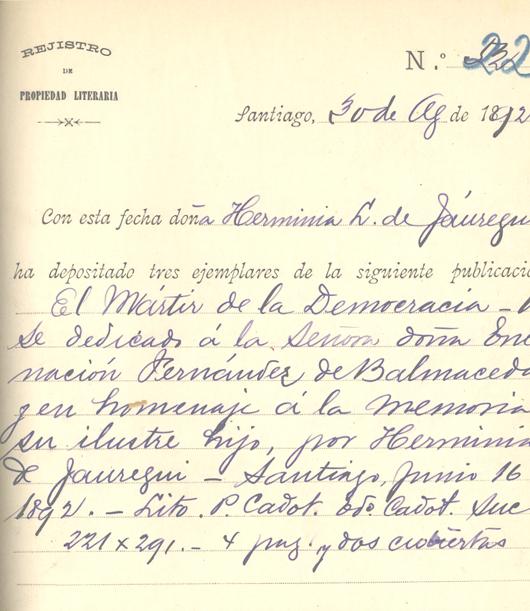 REJISTRO
DE
PROPIEDAD LITERARIA
N.º 22
Santiago, 30 de Ag de 1892
Con esta fecha doña Herminia L. de Jáuregu
ha depositado tres ejemplares de la siguiente publicació
El Mártir de la Democracia -
se dedicado á la Señora doña Enc
nación Fernández de Balmaceda
y en homenaje á la memoria
su ilustre hijo, por Herminia
de Jauregui - Santiago, Junio 16
1892. - Lito. P. Cadot. Edo. Cadot. Suc
221 x 291. - 4 pag. y dos cubiertas